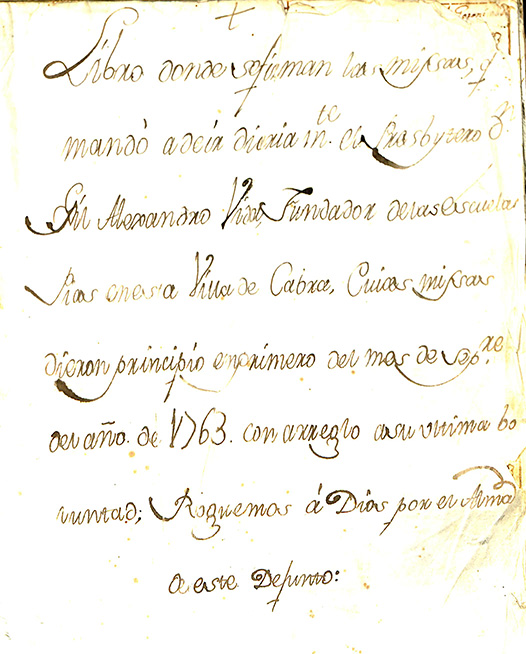 Libro donde se firman las missas, q
mandò a decir diaria m.te el Presbytero D.n
Gil Alexandro Vivas, Fundador de las escuelas
Pias en esta Villa de Cabra, Cuias missas
dieron principio en primero del mes de Sep.re
del año. de 1763. con arreglo a su ultima bo
luntad; Roguemos â Dios por el Alma
de este Defunto: